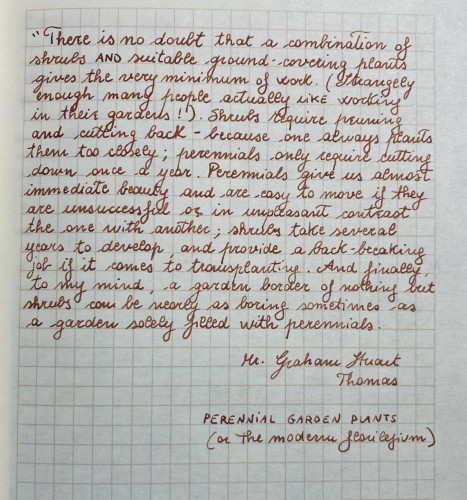 "There is no doubt that a combination of
shrubs AND suitable ground-covering plants
gives the very minimum of work. (Strangely
enough many people actually LIKE working
in their gardens!'). Shrubs require pruning
and cutting back - because one always plants
them too closely; perennials only require cutting
down once a year. Perennials give us almost
immediate beauty and are easy to move if they
are unsuccessful or in unpleasant contrast
the one with another; shrubs take several
years to develop, and provide a back-breaking
job if it comes to transplanting. And finally,
to my mind, a garden border of nothing but
shrubs can be nearly as boring sometimes as
a garden solely filled with perennials.
Mr. Graham Stuart
Thomas
PERENNIAL GARDEN PLANTS
(or The modern florilegium)